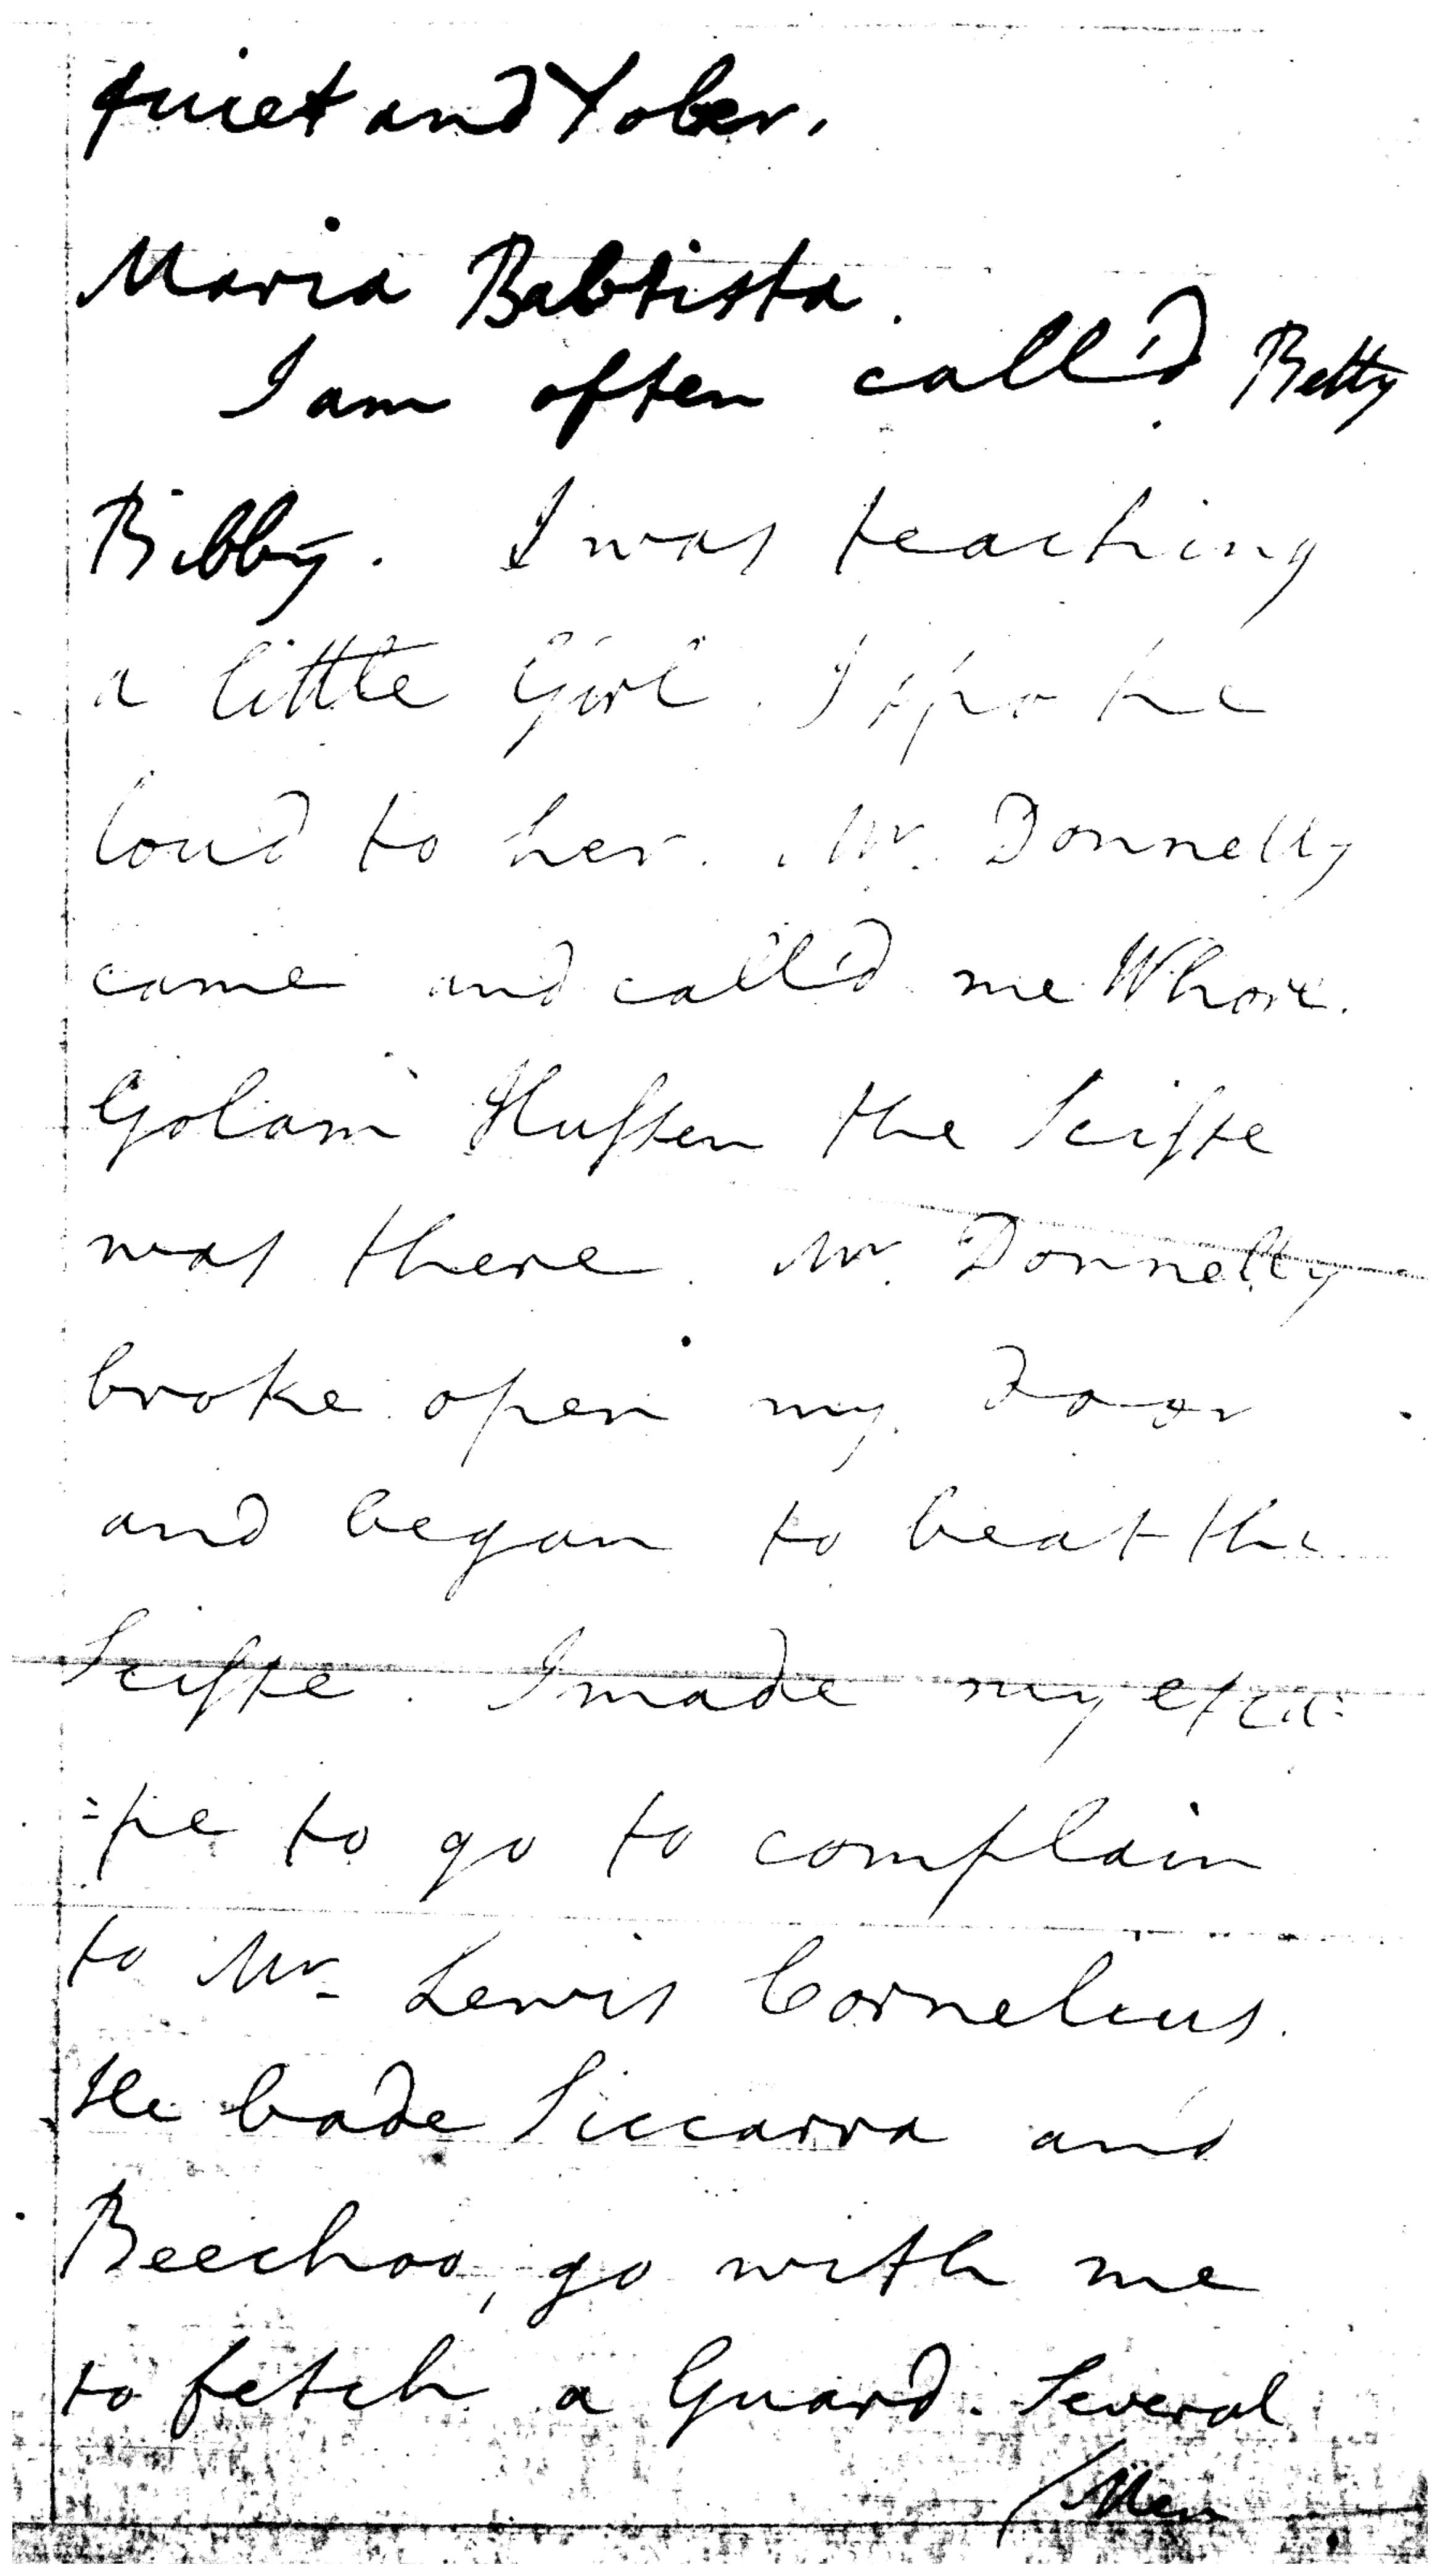 quiet and Sober.
Maria Babtista.
I am often call'd Betty
Bibby. I was teaching
a little Girl. I spoke
loud to her. Mr. Donnelly
came and call'd me Whore.
Golam Hussen the Seiste
was there. Mr. Donnelly
broke open my door
and began to beat the
Seiste. I made my esca=
=pe to go to complain
to Mr. Lewis Cornelius.
He bade Siccarra and
Beechoo, go with me
to fetch a Guard. Several
/Men